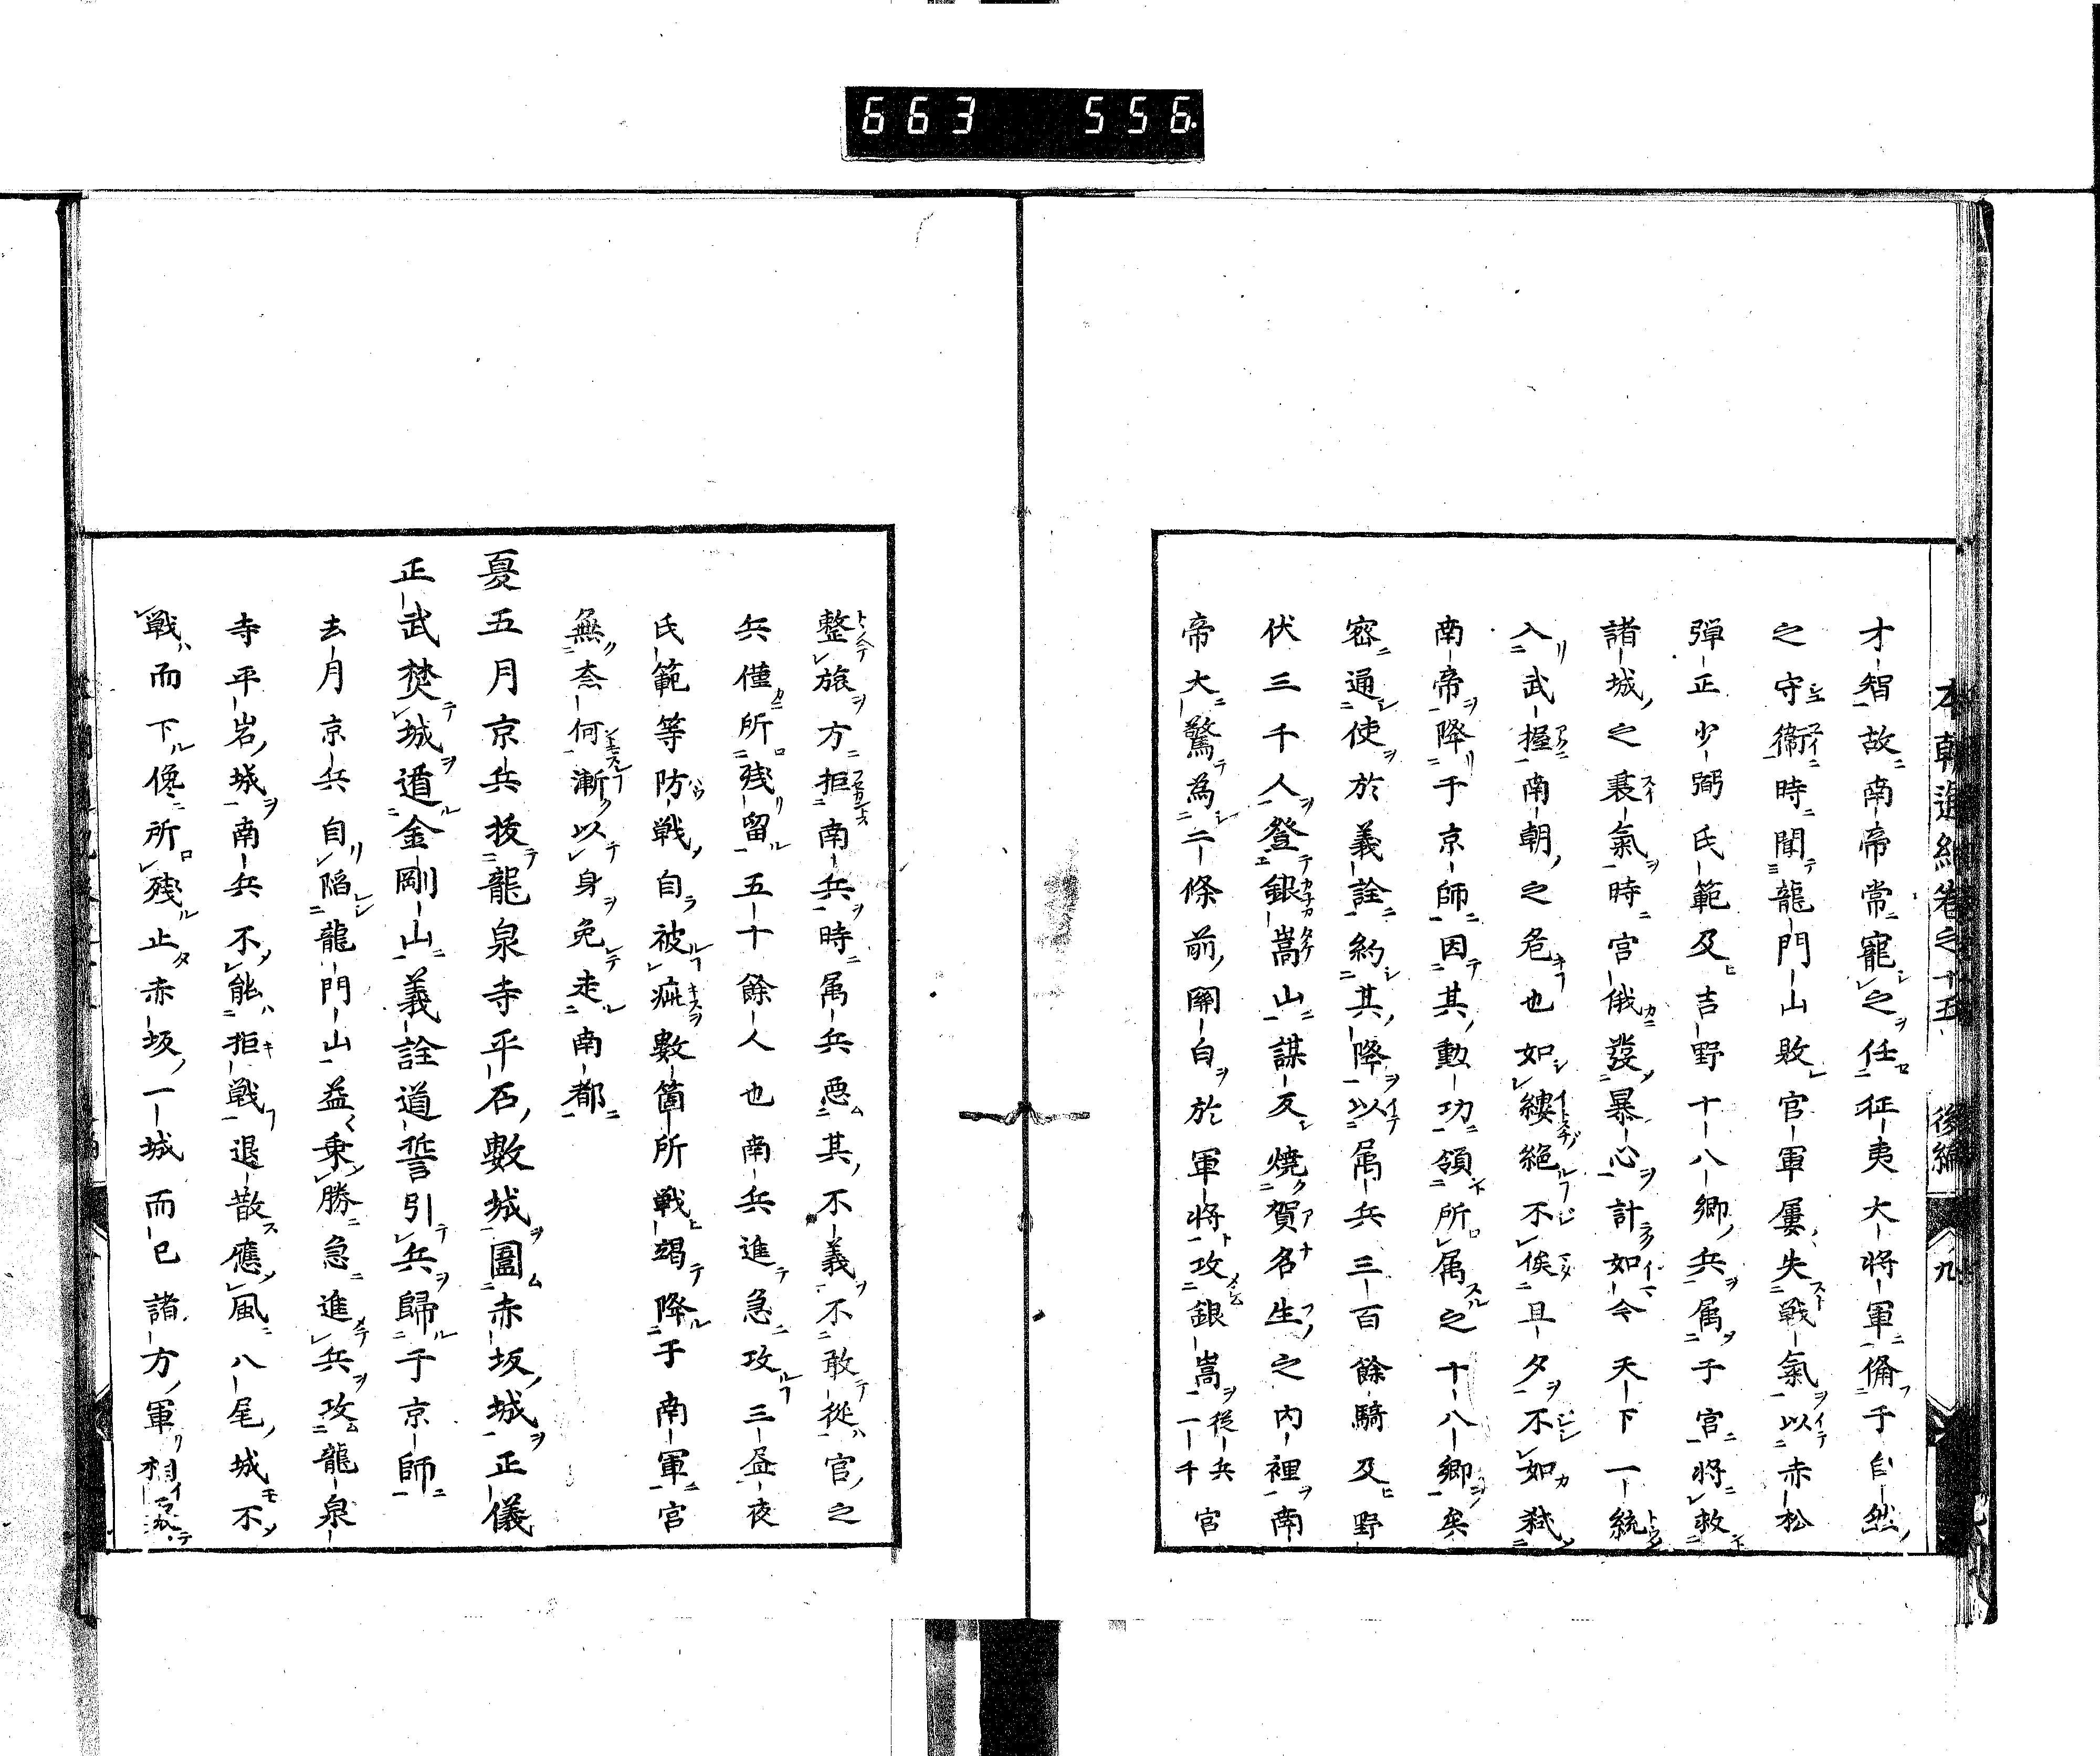 663 556.
本朝通紀卷之十五 後編 九
才智故南帝常寵之任征夷大將軍備于自然
之守衛時聞龍門山敗官軍屢失戰氣以赤松
彈正少弼氏範及吉野十八鄉兵属于官將救
諸城之衰氣時宮俄發暴心計如今天下一統
入武握南朝之危也如縷絕不俟旦夕不如弑
南帝降于京師因其勳功領所属之十八鄉矣
密通使於義詮約其降以属兵三百餘騎及野
伏三千人登銀嵩山謀反燒賀名生之内裡南
帝大驚為二條前關白於軍將攻銀嵩從兵一千官
整旅方拒南兵時属兵惡其不義不敢從官之
兵僅所殘留五十餘人也南兵進急攻三昼夜
氏範等防戰自被疵數箇所戰竭降于南軍官
無柰何漸以身免走南都
夏五月京兵拔龍泉寺平石數城圍赤坂城正儀
正武焚城遁金剛山義詮道誓引兵歸于京師
去月京兵自陷龍門山益乗勝急進兵攻龍泉
寺平岩城南兵不能拒戰退散應風八尾城不
戰而下儳所殘止赤坂一城而已諸方軍相